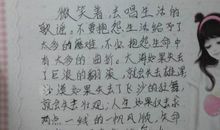 微笑着，去唱生活的
歌谣，不要抱怨生活给予了
太多的磨难，不必抱怨生命中
有太多的曲折。大海如果失去
了巨浪的翻滚，就会失去雄浑
沙漠如果失去了飞沙的狂舞，
就会失去壮观，人生如果仅求
两点一线的一帆风顺，生命